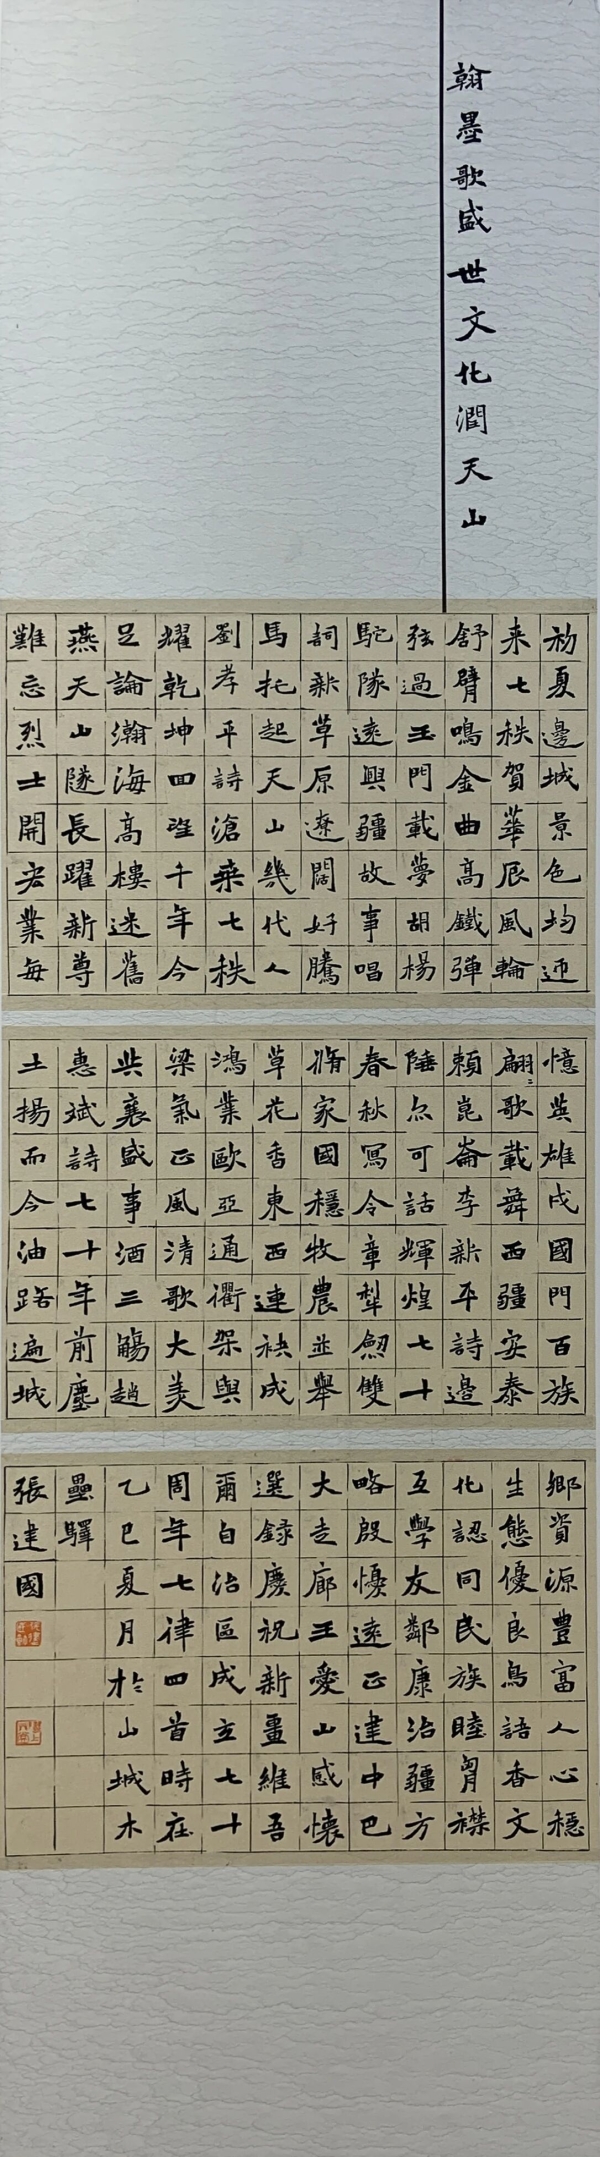 翰墨歌盛世文化潤天山
初夏邊城景色均迎
来七秩賀華辰風輪
舒臂鳴金曲高鐵彈
弦過玉門載夢胡楊
駝隊遠興疆故事唱
詞新草原遼闊好騰
馬托起天山幾代人
劉孝平詩滄桒七秩
耀乾坤回望千年今
足論瀚海高樓迷舊
燕天山隧長躍新尊
難忘烈士開宏業每
憶英雄戍國門百族
翩〻歌載舞西疆安泰
賴崑崙李新平詩邉
陲点可話輝煌七十
春秋寫令章犁劍雙
脩家國穩牧農並舉
草花香東西連袂成
鴻業歐亞通衢架與
梁氣正風清歌大美
共襄盛事酒三觴趙
惠斌詩七十年前塵
土揚而今油路遍城
鄉資源豐富人心穩
生態優良鳥語香文
化認同民族睦胷襟
互學友鄰康治疆方
略殷懮遠正建中巴
大走廊王愛山感懷
選録慶祝新畺維吾
爾自治區成立七十
周年七律四首時在
乙巳夏月於山城木
壘驛
張建國